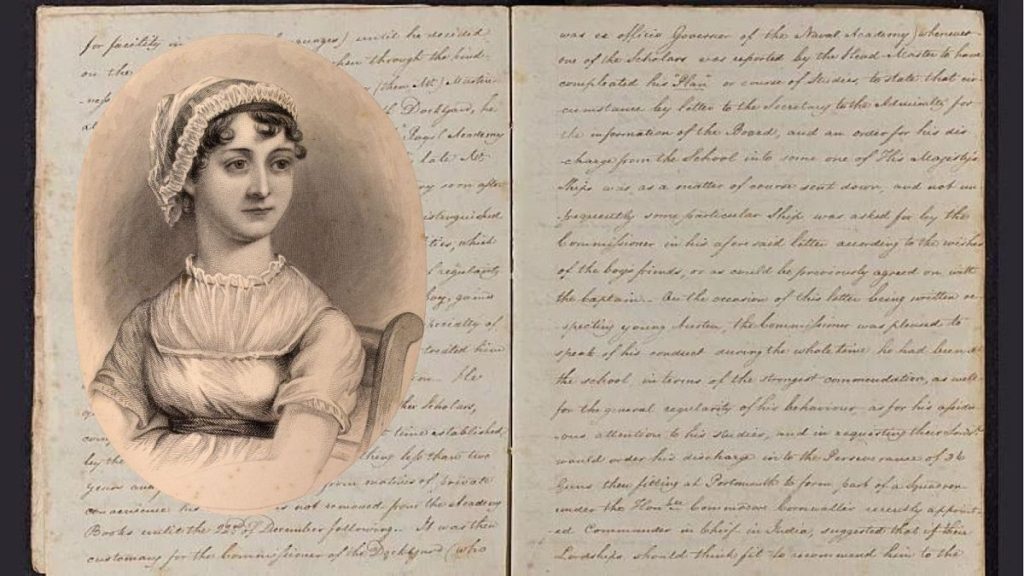 for facility in languages) until he decided
on the then through the kind
(then Mr.) Martin
Dockyard, he
Royal Academy
late Mr.
soon after
distinguished
which
of regularity
boy, gained
of
treated him
He
her Scholars,
time established,
by the then less than two
years and from motives of private
convenience his is not removed from the Academy
Books until the 23rd. of December following. It was then
customary for the Commissioner of the Dockyard (who
was ex officio Governor of the Naval Academy) whenever
one of the Scholars was reported by the Head Master to have
complicated his "Plan" or course of Studies, to state that cir-
cumstance by letter to the Secretary to the Admiralty for
the information of the Board, and an order for his dis
charge from the School into some one of His Majesty's
Ships was, as a matter of course sent down, and not un
frequently some particular Ship was asked for by the
Commissioner in his aforesaid letter according to the wishes
of the boys friends, or as could be previously agreed on with
the Captain. On the occasion of this letter being written re-
specting young Austen, the Commissioner was pleased to
speak of his conduct during the whole time he had been at
the school, in terms of the strongest commendation, as well
for the general regularity of his behaviour as for his assidu
ous attention to his studies, and in requesting their Lordps.
would order his discharge in to the Perseverance of 36
Guns then fitting at Portsmouth to form part of a Squadron
under the Honble. Commodore Cornwallis recently appoint-
ed Commander in Chief in India, suggested that if their
Lordships should think fit to recommend him to the